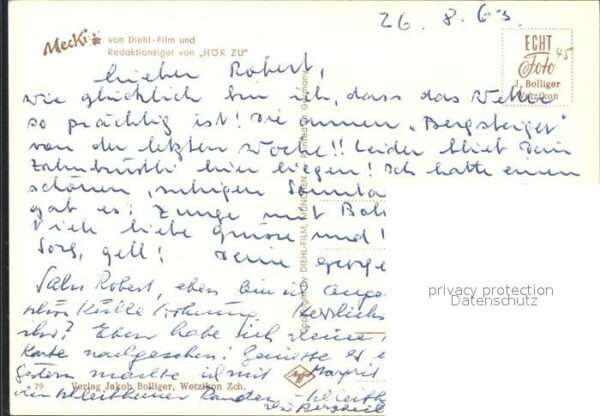 26. 8. 63.
Mecki von Diehl-Film und
Redaktionsigel von „HÖR ZU"
ECHT
Foto
45
J. Bolliger
Wetzikon
Lieber Robert,
wie glücklich bin ich, dass das Wetter
so prächtig ist! Die armen „Bergsteiger"
von der letzten Woche!! Leider blieb Dein
Zahnbürstli hier liegen! Ich hatte einen
schönen, ruhigen Sonnta
gab es: Zunge mit Boh
Viele liebe Grüsse und
Sorg, gell! Deine
Copyright by DIEHL-FILM, MÜNCHEN Printed in Germany
privacy protection
Datenschutz
Salü Robert, eben bin ich
schön Kühle Wohnung. Herrlich
Eben habe ich Deine
Karte nachgesehen! Geniesse es
gestern machte ich mit Margrit
79 Verlag Jakob Bolliger, Wetzikon Zch.
Agfa
Randen